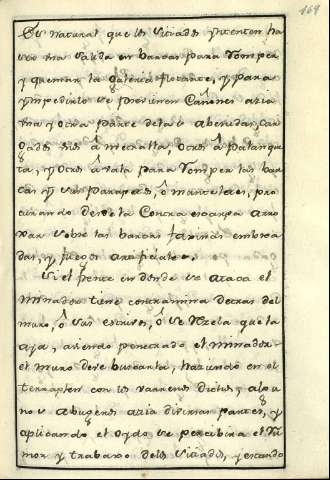 169
Es natural que los sitiados yntenten ha-
cer una salida en barcas para romper,
y quemar la galeria flotante, y para
ympedirlo se previenen Cañones acia
una y otra parte de las abenidas, car-
gados unos á metralla, otros á palanque-
ta, y otros á vala para romper las bar-
cas y sus parapetos, ó manteletes, pro-
curando desde la Contra escarpa arro-
xar sobre las barcas faxinas embrea-
das, y fuegos artificiales.
Si el frente en donde se ataca el
minador tiene contramina detras del
muro, ó sus estrivos, ó se rezela que la
aja, aviendo penetrado el minador
el muro deve buscarla, haziendo en el
terraplen con los varrenos dichos, algu-
nos abugeros acia diversas partes, y
aplicando el oydo se percibira el ru-
mor y travajo de los sitiados, y estando